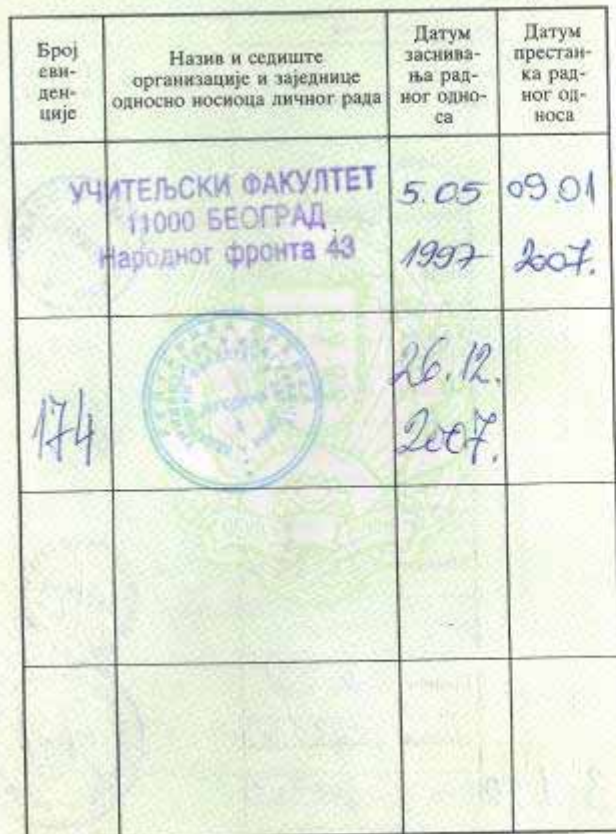 Број
еви-
ден-
ције
Назив и седиште
организације и заједнице
односно носиоца личног рада
Датум
заснива-
ња рад-
ног одно-
са
Датум
престан-
ка рад-
ног од-
носа
УЧИТЕЉСКИ ФАКУЛТЕТ
11000 БЕОГРАД
Народног фронта 43
5.05
1997
09.01
2007.
174
26.12.
2007.